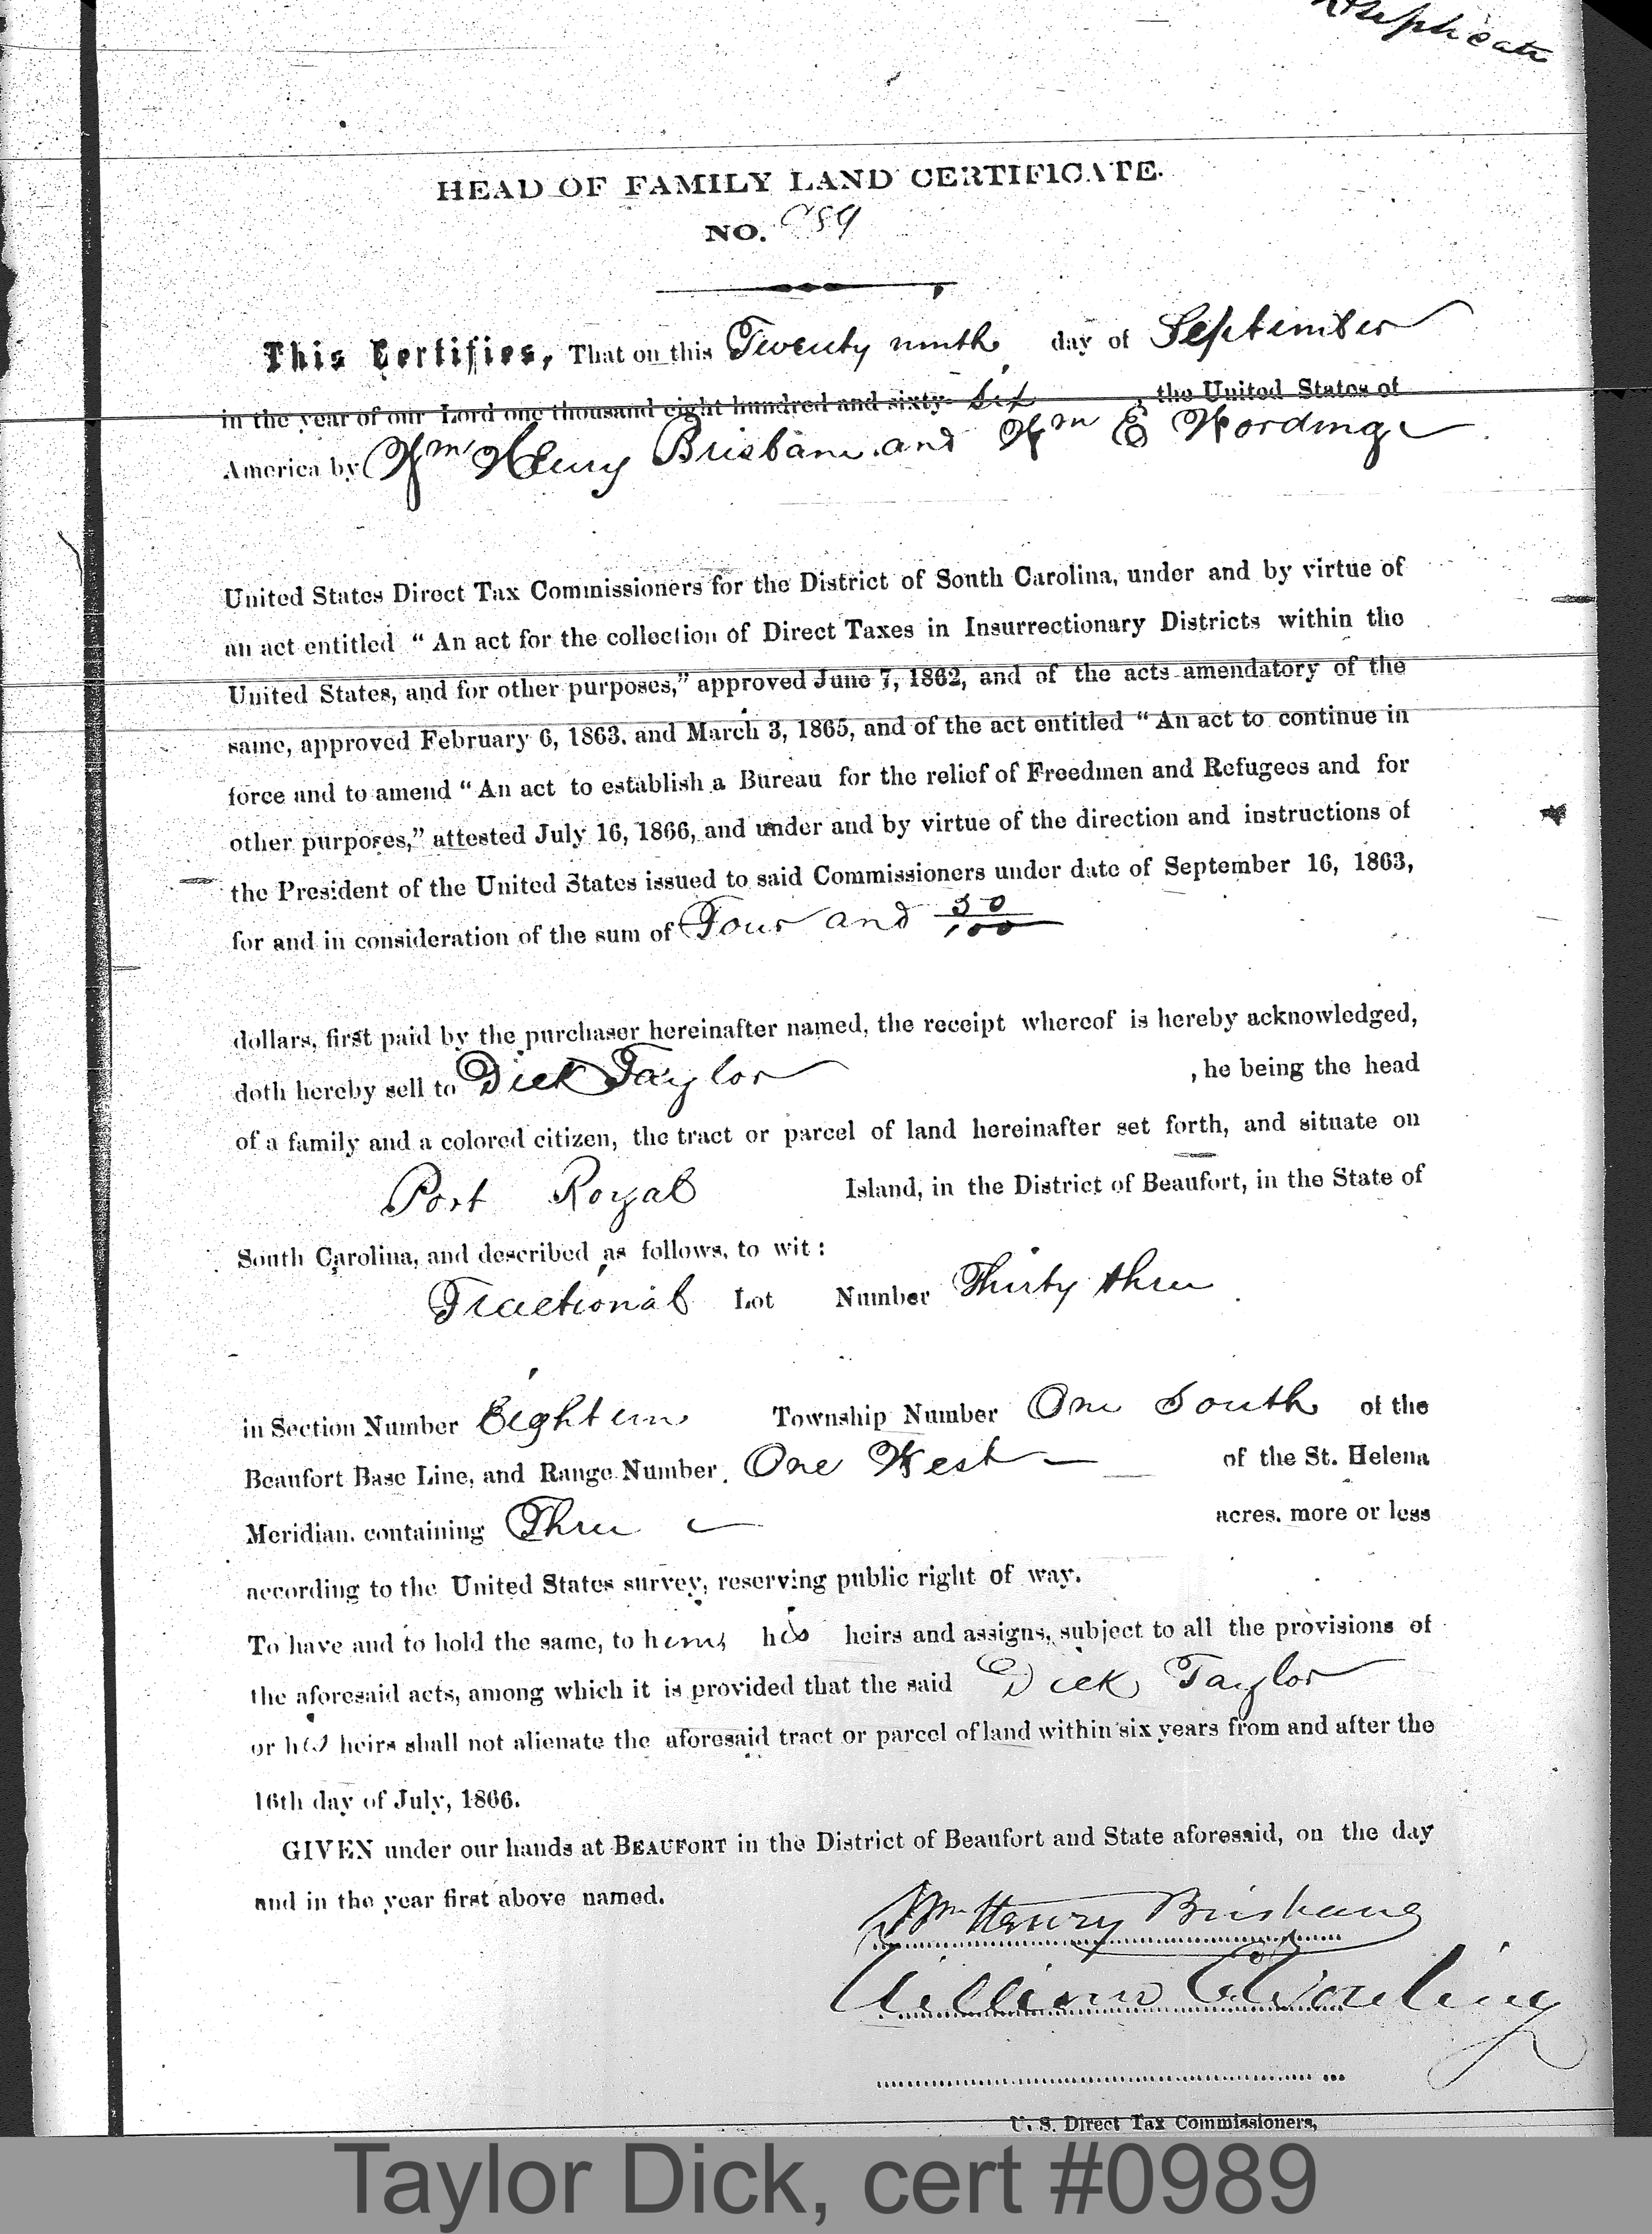 HEAD OF FAMILY LAND CERTIFICATE.
NO. 989
This Certifies, That on this Twenty ninth day of September
in the year of our Lord one thousand eight hundred and sixty- six, the United States of
America by Wm Henry Brisbane and Wm E Wording
United States Direct Tax Commissioners for the District of South Carolina, under and by virtue of
an act entitled “An act for the collection of Direct Taxes in Insurrectionary Districts within the
United States, and for other purposes,” approved June 7, 1862, and of the acts amendatory of the
same, approved February 6, 1863. and March 3, 1865, and of the act entitled “An act to continue in
force and to amend “An act to establish a Bureau for the relief of Freedmen and Refugees and for
other purposes,” attested July 16, 1866, and under and by virtue of the direction and instructions of
the President of the United States issued to said Commissioners under date of September 16, 1863,
for and in consideration of the sum of Four and 50/100
dollars, first paid by the purchaser hereinafter named, the receipt whereof is hereby acknowledged,
doth hereby sell to Dick Taylor , he being the head
of a family and a colored citizen, the tract or parcel of land hereinafter set forth, and situate on
Port Royal Island, in the District of Beaufort, in the State of
South Carolina, and described as follows, to wit:
Fractional Lot Number Thirty three
in Section Number Eighteen Township Number One South of the
Beaufort Base Line, and Range Number One West of the St. Helena
Meridian. containing Three acres. more or less
according to the United States survey, reserving public right of way.
To have and to hold the same, to him, his heirs and assigns, subject to all the provisions of
the aforesaid acts, among which it is provided that the said Dick Taylor
or his heirs shall not alienate the aforesaid tract or parcel of land within six years from and after the
16th day of July, 1866.
GIVEN under our hands at BEAUFORT in the District of Beaufort and State aforesaid, on the day
and in the year first above named.
Wm Henry Brisbane
William E Wording
U. S. Direct Tax Commissioners,
Taylor Dick, cert #0989